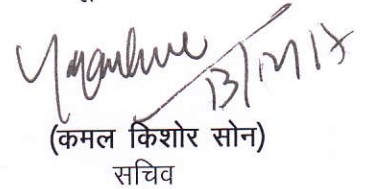 13/12/17
(कमल किशोर सोन)
सचिव